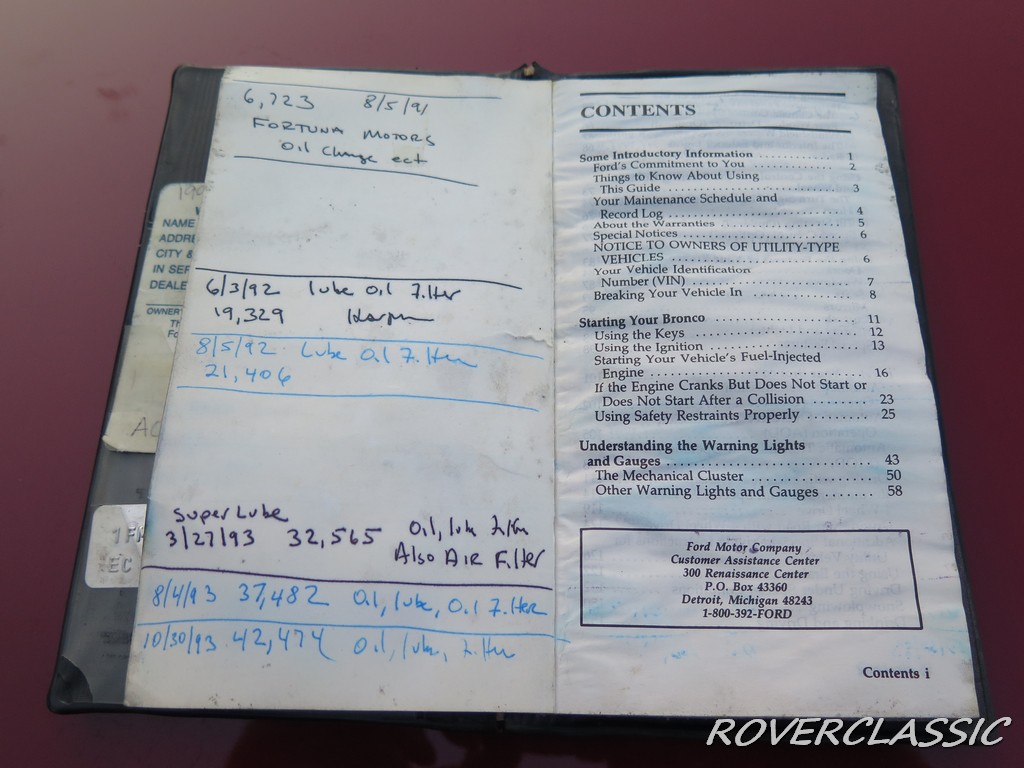 6,723 8/5/91
FORTUNA MOTORS
Oil Change ect
6/3/92 lube Oil Filter
19,329
8/5/92 Lube Oil Filter
21,406
Super Lube
3/27/93 32,565 Oil, lube Filter
Also AIR Filter
8/4/93 37,482 Oil, lube, Oil Filter
10/30/93 42,474 Oil, lube, Filter
NAME
CITY &
IN SER
DEALE
OWNER
CONTENTS
Some Introductory Information .......... 1
Ford's Commitment to You .......... 2
Things to Know About Using
This Guide .......... 3
Your Maintenance Schedule and
Record Log .......... 4
About the Warranties .......... 5
Special Notices .......... 6
NOTICE TO OWNERS OF UTILITY-TYPE
VEHICLES .......... 6
Your Vehicle Identification
Number (VIN) .......... 7
Breaking Your Vehicle In .......... 8
Starting Your Bronco .......... 11
Using the Keys .......... 12
Using the Ignition .......... 13
Starting Your Vehicle's Fuel-Injected
Engine .......... 16
If the Engine Cranks But Does Not Start or
Does Not Start After a Collision ........ 23
Using Safety Restraints Properly ........ 25
Understanding the Warning Lights
and Gauges .......... 43
The Mechanical Cluster .......... 50
Other Warning Lights and Gauges ....... 58
Ford Motor Company
Customer Assistance Center
300 Renaissance Center
P.O. Box 43360
Detroit, Michigan 48243
1-800-392-FORD
Contents i
ROVERCLASSIC